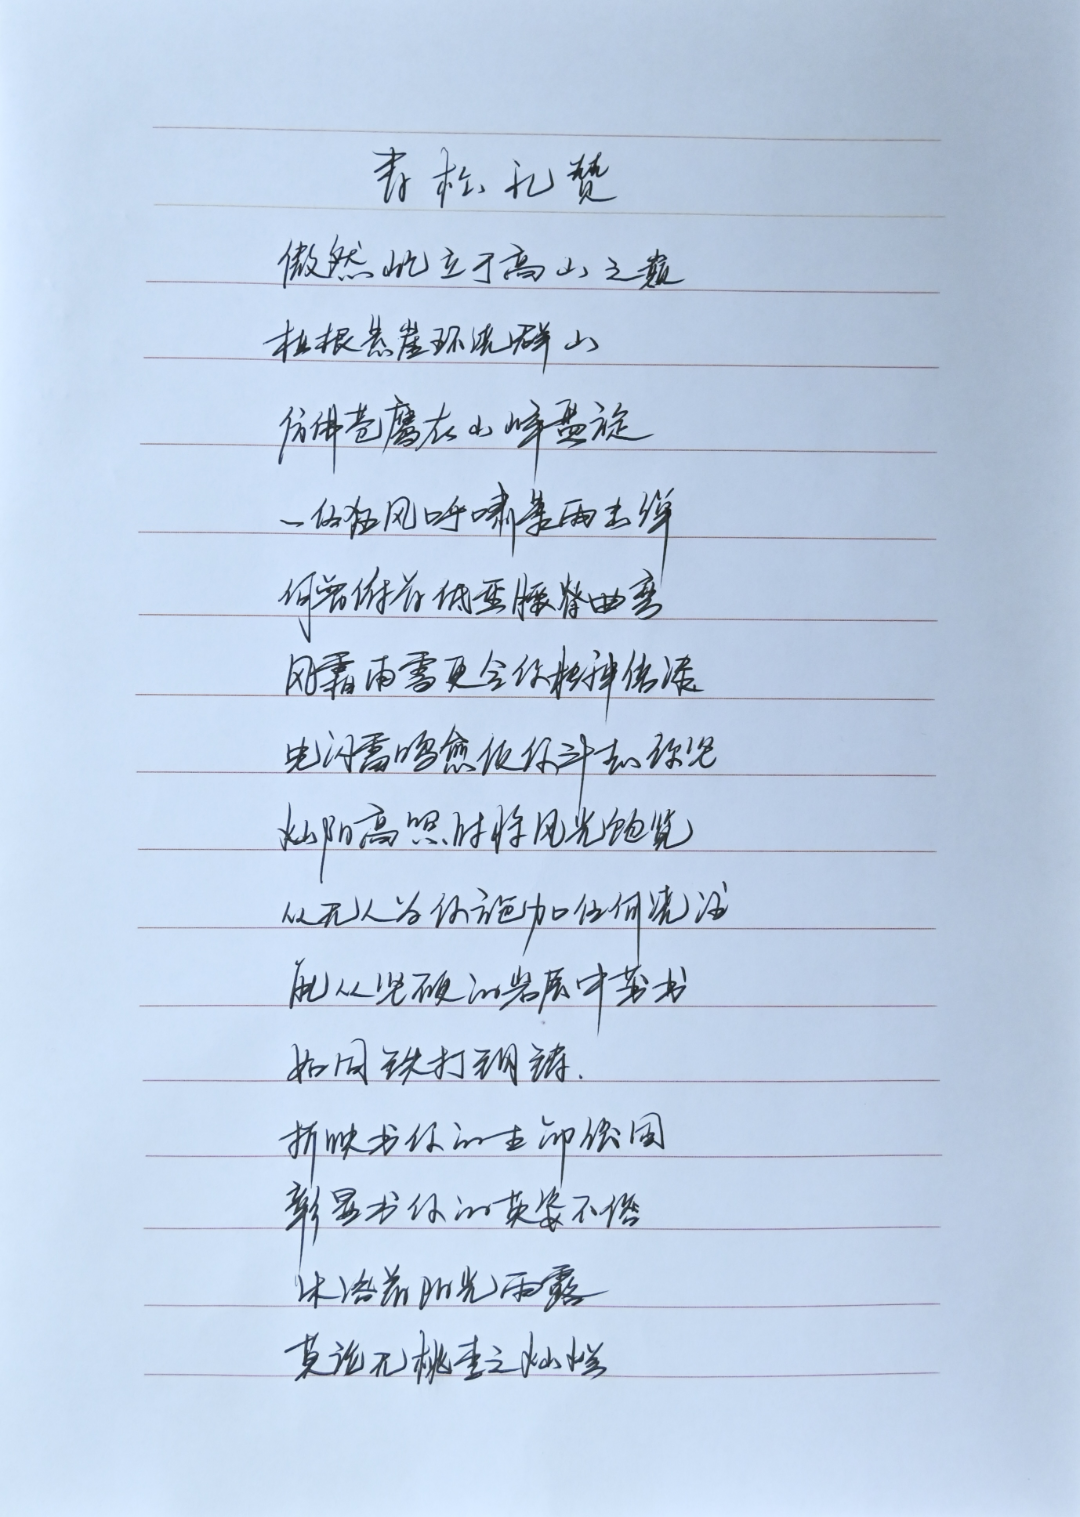 青松礼赞
傲然屹立于高山之巅
植根悬崖环流群山
仿佛苍鹰在山峰盘旋
一任狂风呼啸暴雨击弹
何曾俯首低垂腰脊曲弯
风霜雨雪更令你精神倍添
电闪雷鸣愈使你斗志弥坚
灿阳高照时将风光饱览
从无人为你施加任何浇灌
能从坚硬的岩层中茁出
如同铁打钢铸.
折映出你的生命顽固
彰显出你的英姿不俗
沐浴着阳光雨露
莫说无桃李之灿烂